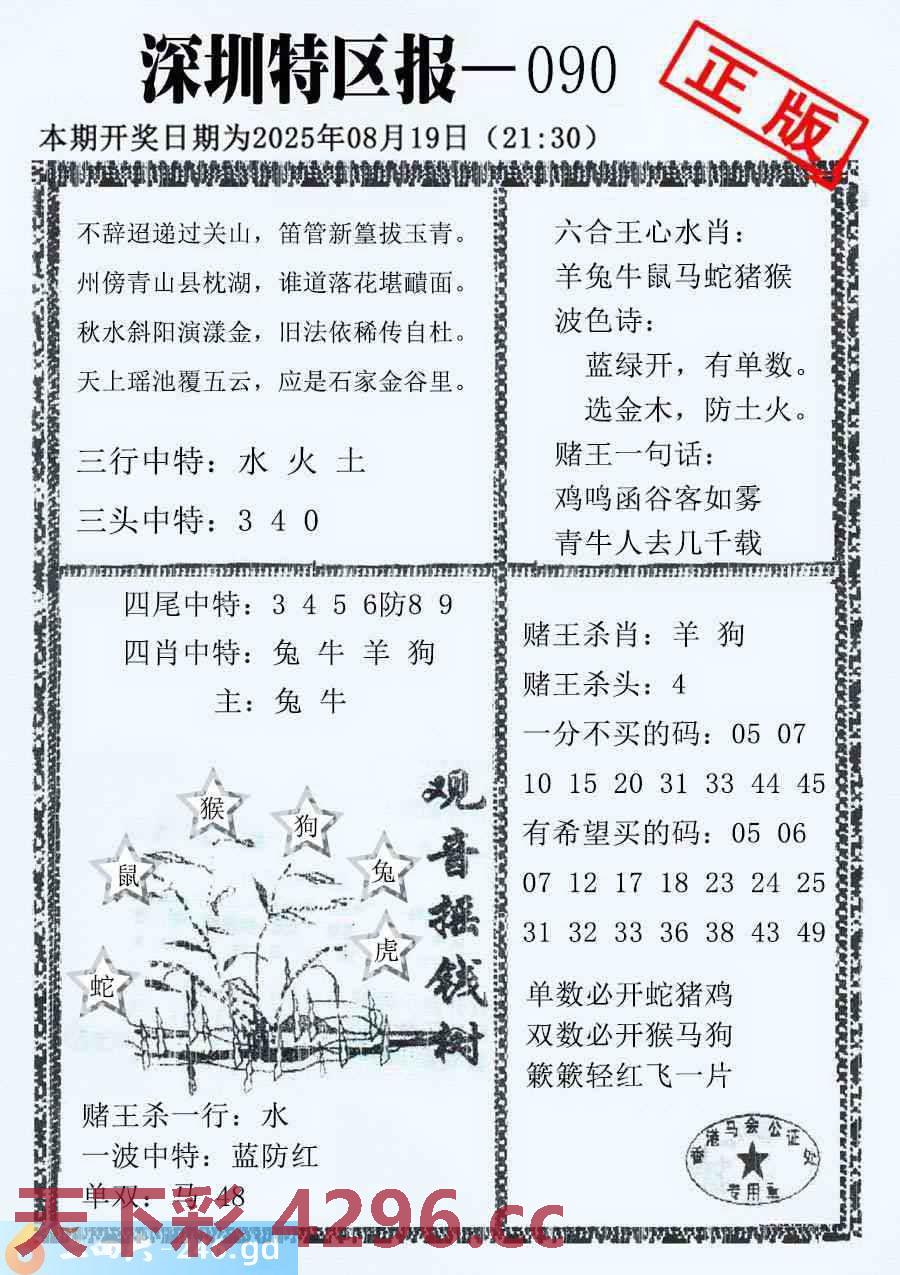 深圳特区报—090
正版
本期开奖日期为2025年08月19日（21:30）
不辞迢递过关山，笛管新篁拔玉青。
州傍青山县枕湖，谁道落花堪靧面。
秋水斜阳演漾金，旧法依稀传自杜。
天上瑶池覆五云，应是石家金谷里。
三行中特：水 火 土
三头中特：3 4 0
六合王心水肖：
羊兔牛鼠马蛇猪猴
波色诗：
蓝绿开，有单数。
选金木，防土火。
赌王一句话：
鸡鸣函谷客如雾
青牛人去几千载
四尾中特：3 4 5 6防8 9
四肖中特：兔 牛 羊 狗
主：兔 牛
观音摇钱树
猴
狗
鼠
兔
虎
蛇
赌王杀一行：水
一波中特：蓝防红
单双：马 48
赌王杀肖：羊 狗
赌王杀头：4
一分不买的码：05 07
10 15 20 31 33 44 45
有希望买的码：05 06
07 12 17 18 23 24 25
31 32 33 36 38 43 49
单数必开蛇猪鸡
双数必开猴马狗
簌簌轻红飞一片
香港马会公证处
专用章
天下彩 4296.cc